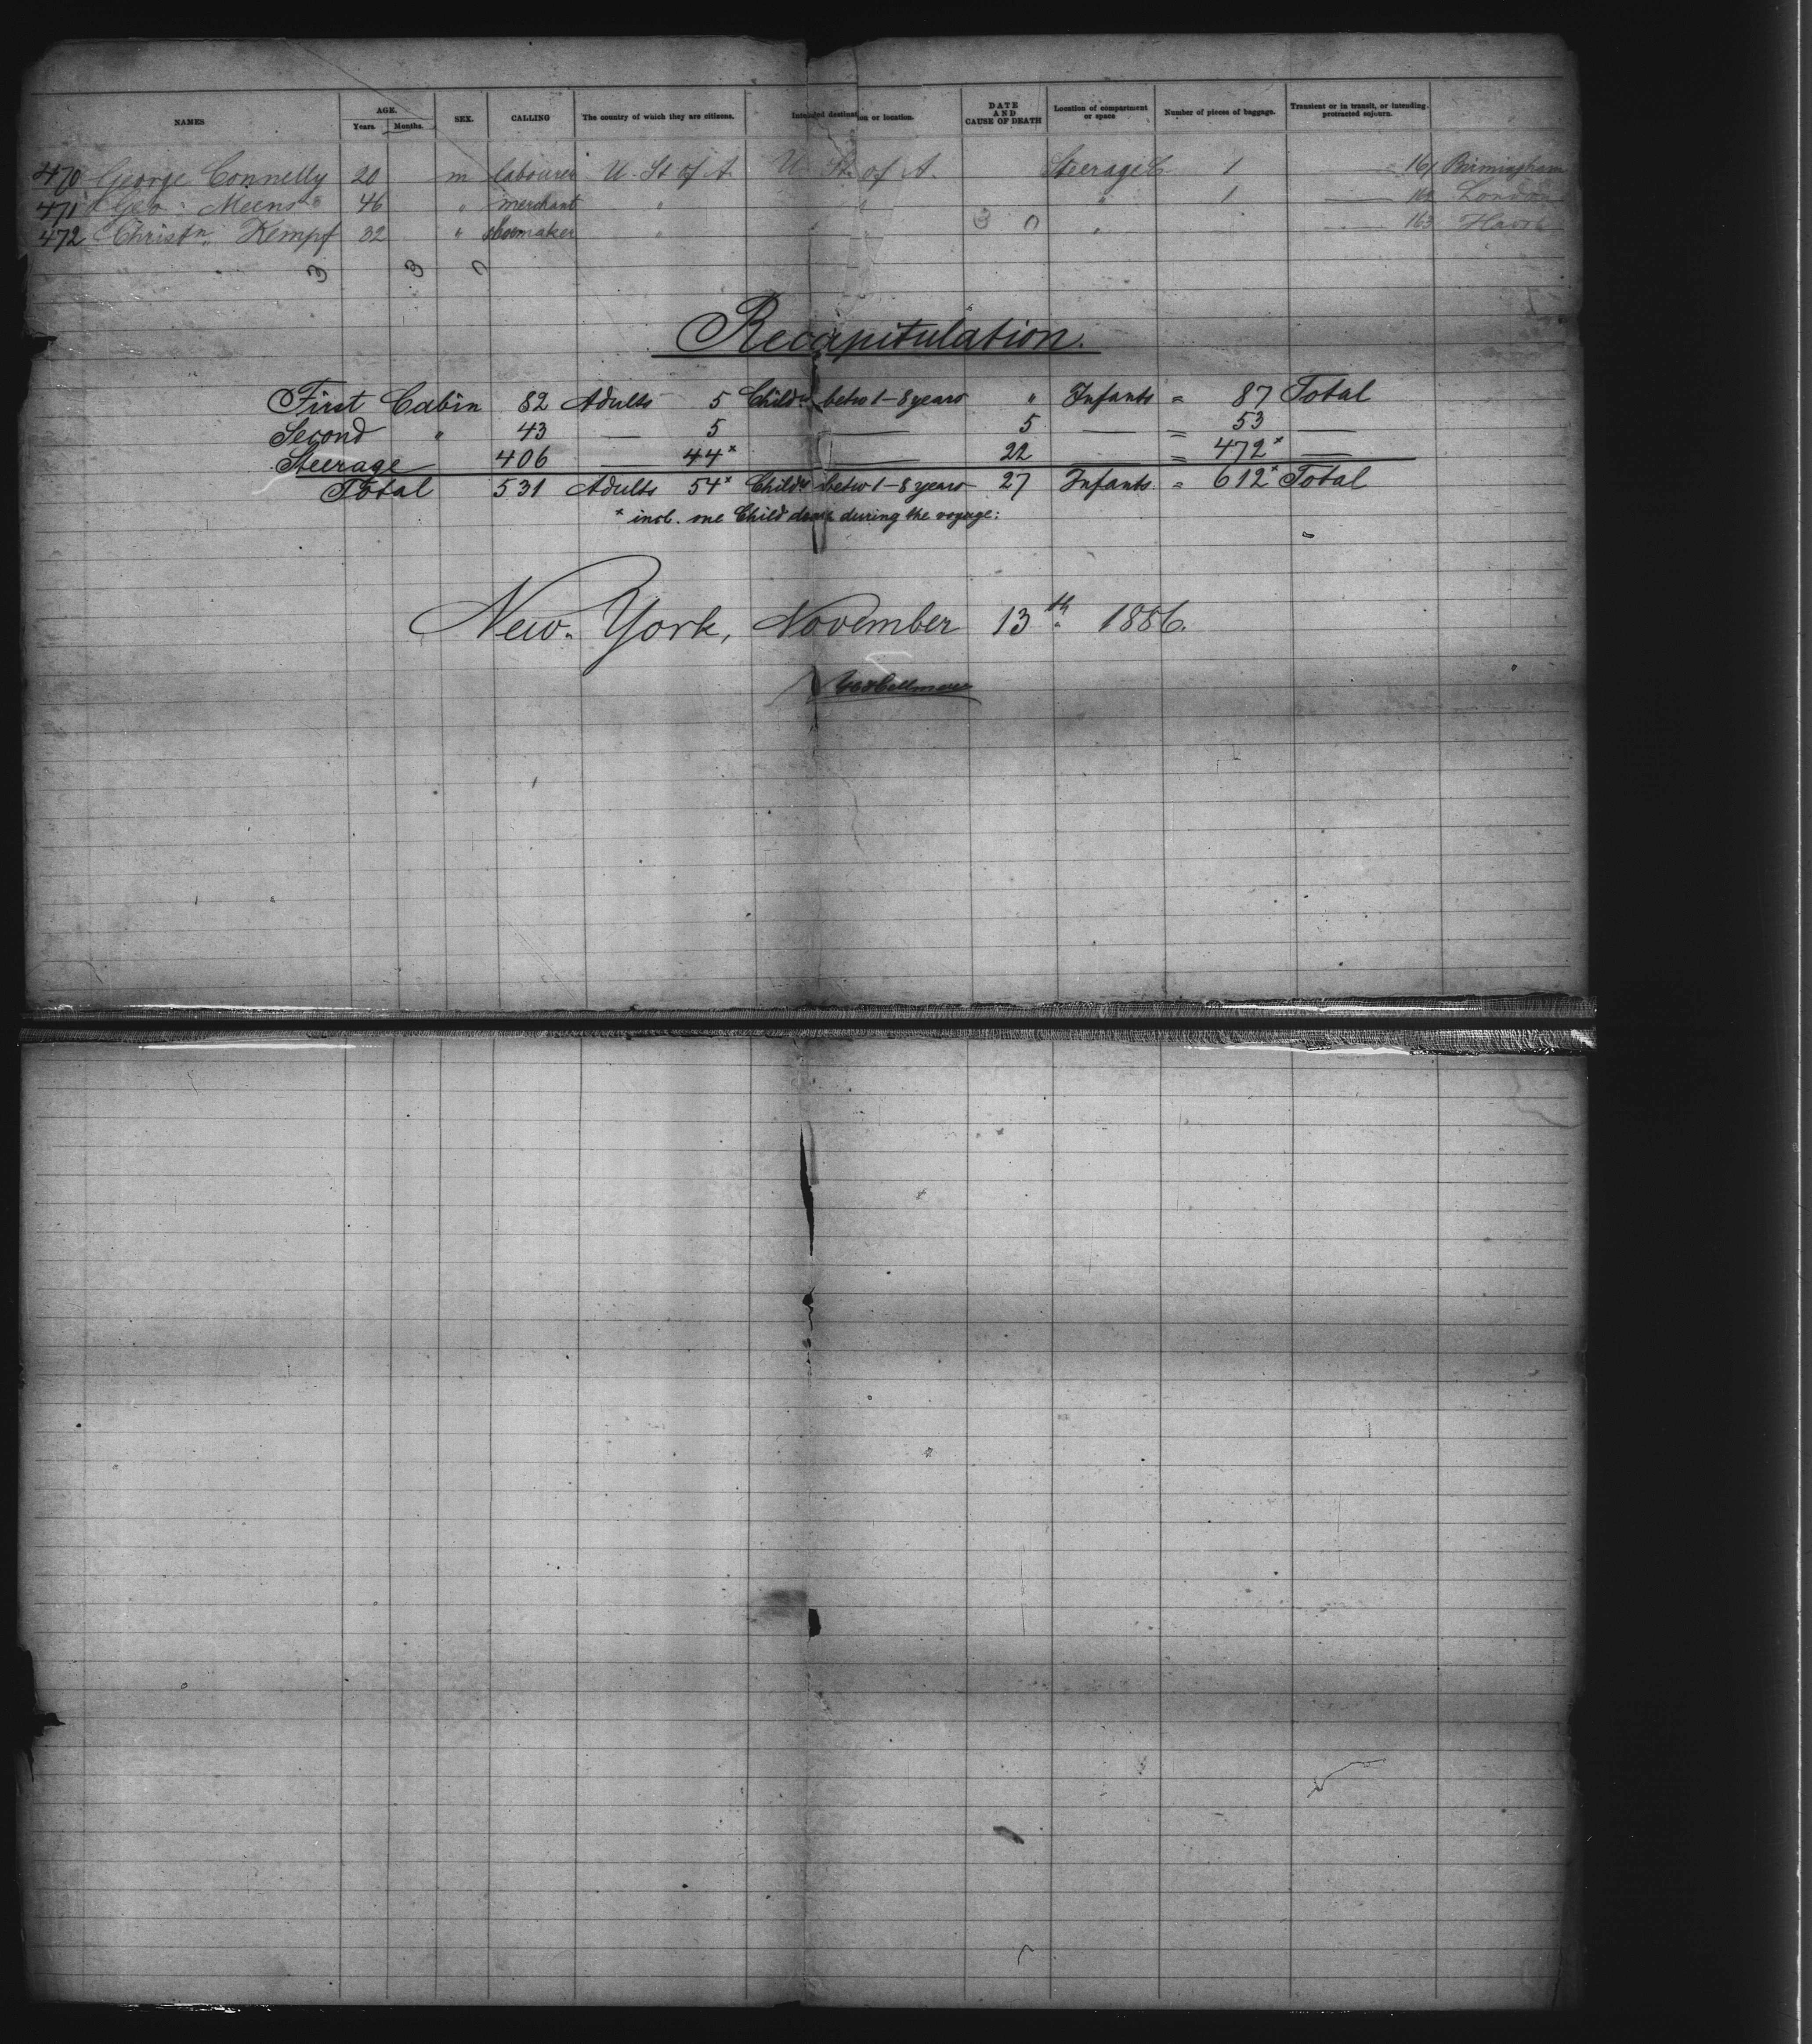 NAMES AGE. Years. Months. SEX. CALLING The country of which they are citizens. Intended destination or location. DATE AND CAUSE OF DEATH Location of compartment or space Number of pieces of baggage. Transient or in transit, or intending protracted sojourn.
470 George Connelly 20 m labourer U. St of A. U. St. of A. Steerage 1 161 Birmingham
471 Geo: Meens 46 " merchant " " " 1 — 162 London
472 Christn. Kempf 32 " shoemaker " " 3 0 " — 163 Havre
3 3 0
Recapitulation.
First Cabin 82 Adults 5 Childn betw 1-8 years " Infants = 87 Total
Second " 43 — 5 — 5 — = 53 —
Steerage 406 — 44* — 22 — = 472* —
Total 531 Adults 54* Childn betw 1-8 years 27 Infants = 612* Total
* incl. one Child during the voyage:
New-York, November 13th 1886.